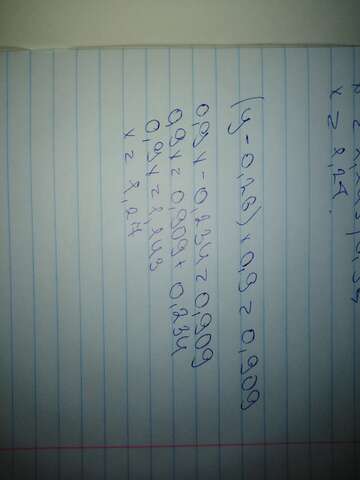 x = 1,27.
(y - 0,26) × 0,9 = 0,909
0,9x - 0,234 = 0,909
0,9x = 0,909 + 0,234
0,9x = 1,143
x = 1,27